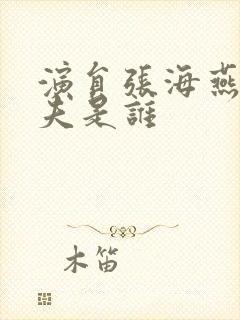 演員張海燕
夫是誰
木笛